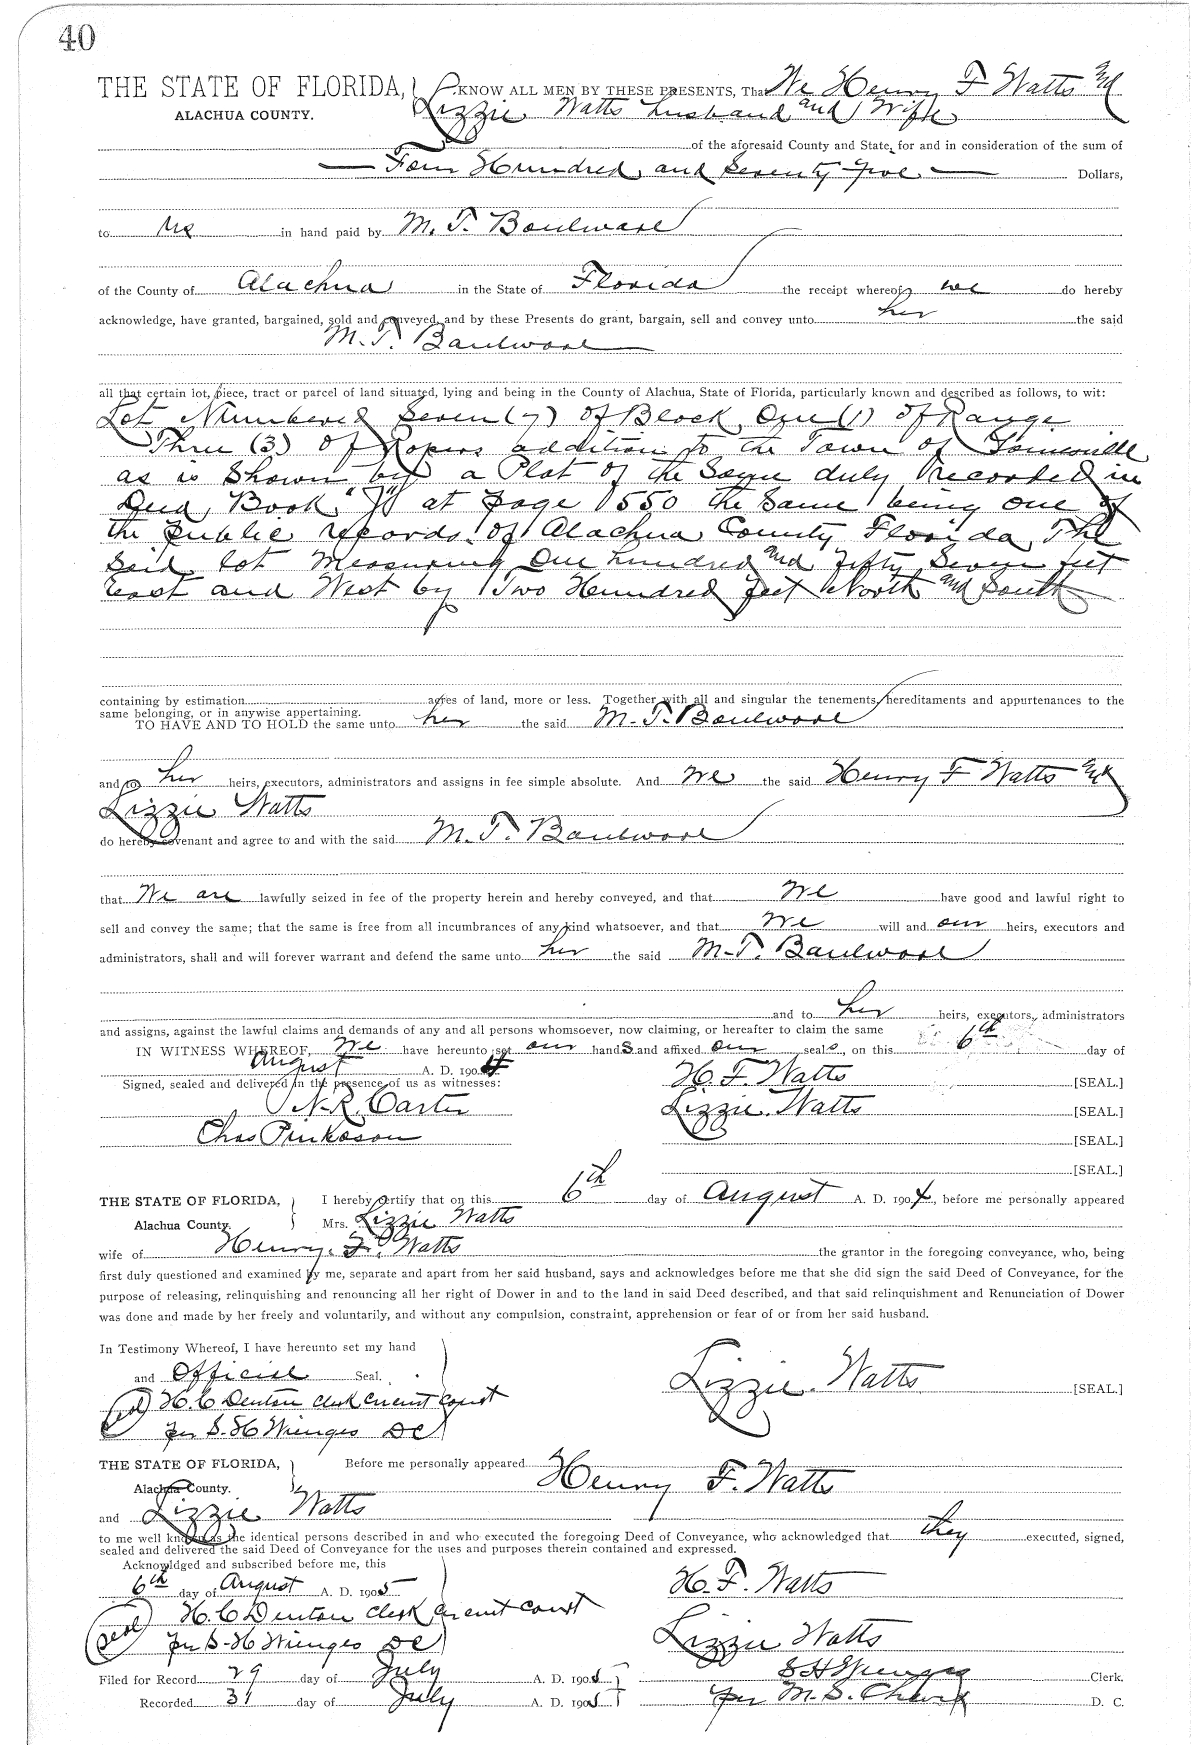 40
THE STATE OF FLORIDA, KNOW ALL MEN BY THESE PRESENTS, That We Henry F Watts and
ALACHUA COUNTY. Lizzie Watts husband and Wife
of the aforesaid County and State, for and in consideration of the sum of
Four Hundred and Seventy five Dollars,
to us in hand paid by M. T. Boulware
of the County of Alachua in the State of Florida the receipt whereof we do hereby
acknowledge, have granted, bargained, sold and conveyed, and by these Presents do grant, bargain, sell and convey unto her the said
M. T. Boulware
all that certain lot, piece, tract or parcel of land situated, lying and being in the County of Alachua, State of Florida, particularly known and described as follows, to wit:
Lot Numbered Seven (7) of Block One (1) of Range
Three (3) of Ropers addition to the Town of Gainesville
as is Shown by a Plat of the Same duly recorded in
Deed Book "J" at page 550 the Same being one of
the public records of Alachua County Florida The
Said lot Measuring One hundred and fifty Seven feet
East and West by Two Hundred feet North and South
containing by estimation acres of land, more or less. Together with all and singular the tenements, hereditaments and appurtenances to the
same belonging, or in anywise appertaining.
TO HAVE AND TO HOLD the same unto her the said M. T. Boulware
and to her heirs, executors, administrators and assigns in fee simple absolute. And We the said Henry F Watts and
Lizzie Watts
do hereby covenant and agree to and with the said M. T. Boulware
that We are lawfully seized in fee of the property herein and hereby conveyed, and that We have good and lawful right to
sell and convey the same; that the same is free from all incumbrances of any kind whatsoever, and that We will and our heirs, executors and
administrators, shall and will forever warrant and defend the same unto her the said M. T. Boulware
and to her heirs, executors, administrators
and assigns, against the lawful claims and demands of any and all persons whomsoever, now claiming, or hereafter to claim the same
IN WITNESS WHEREOF, We have hereunto set our hands and affixed our seals, on this 6th day of
August A. D. 1904
Signed, sealed and delivered in the presence of us as witnesses: H. F. Watts [SEAL.]
N. R. Carter Lizzie Watts [SEAL.]
Chas Pinkoson [SEAL.]
[SEAL.]
THE STATE OF FLORIDA, I hereby certify that on this 6th day of August A. D. 1904, before me personally appeared
Alachua County. Mrs. Lizzie Watts
wife of Henry F. Watts the grantor in the foregoing conveyance, who, being
first duly questioned and examined by me, separate and apart from her said husband, says and acknowledges before me that she did sign the said Deed of Conveyance, for the
purpose of releasing, relinquishing and renouncing all her right of Dower in and to the land in said Deed described, and that said relinquishment and Renunciation of Dower
was done and made by her freely and voluntarily, and without any compulsion, constraint, apprehension or fear of or from her said husband.
In Testimony Whereof, I have hereunto set my hand
and Official Seal. Lizzie Watts [SEAL.]
(seal) H. C Denton clerk circuit court
per S. H Wienges DC
THE STATE OF FLORIDA, Before me personally appeared Henry F. Watts
Alachua County.
and Lizzie Watts
to me well known as the identical persons described in and who executed the foregoing Deed of Conveyance, who acknowledged that they executed, signed,
sealed and delivered the said Deed of Conveyance for the uses and purposes therein contained and expressed.
Acknowldged and subscribed before me, this
6th day of August A. D. 1905 H. F. Watts
(seal) H. C Denton Clerk circuit court
per S. H Wienges DC Lizzie Watts
Filed for Record 29 day of July A. D. 1905 S H Wienges Clerk.
Recorded 31 day of July A. D. 1905 per M. S. D. C.